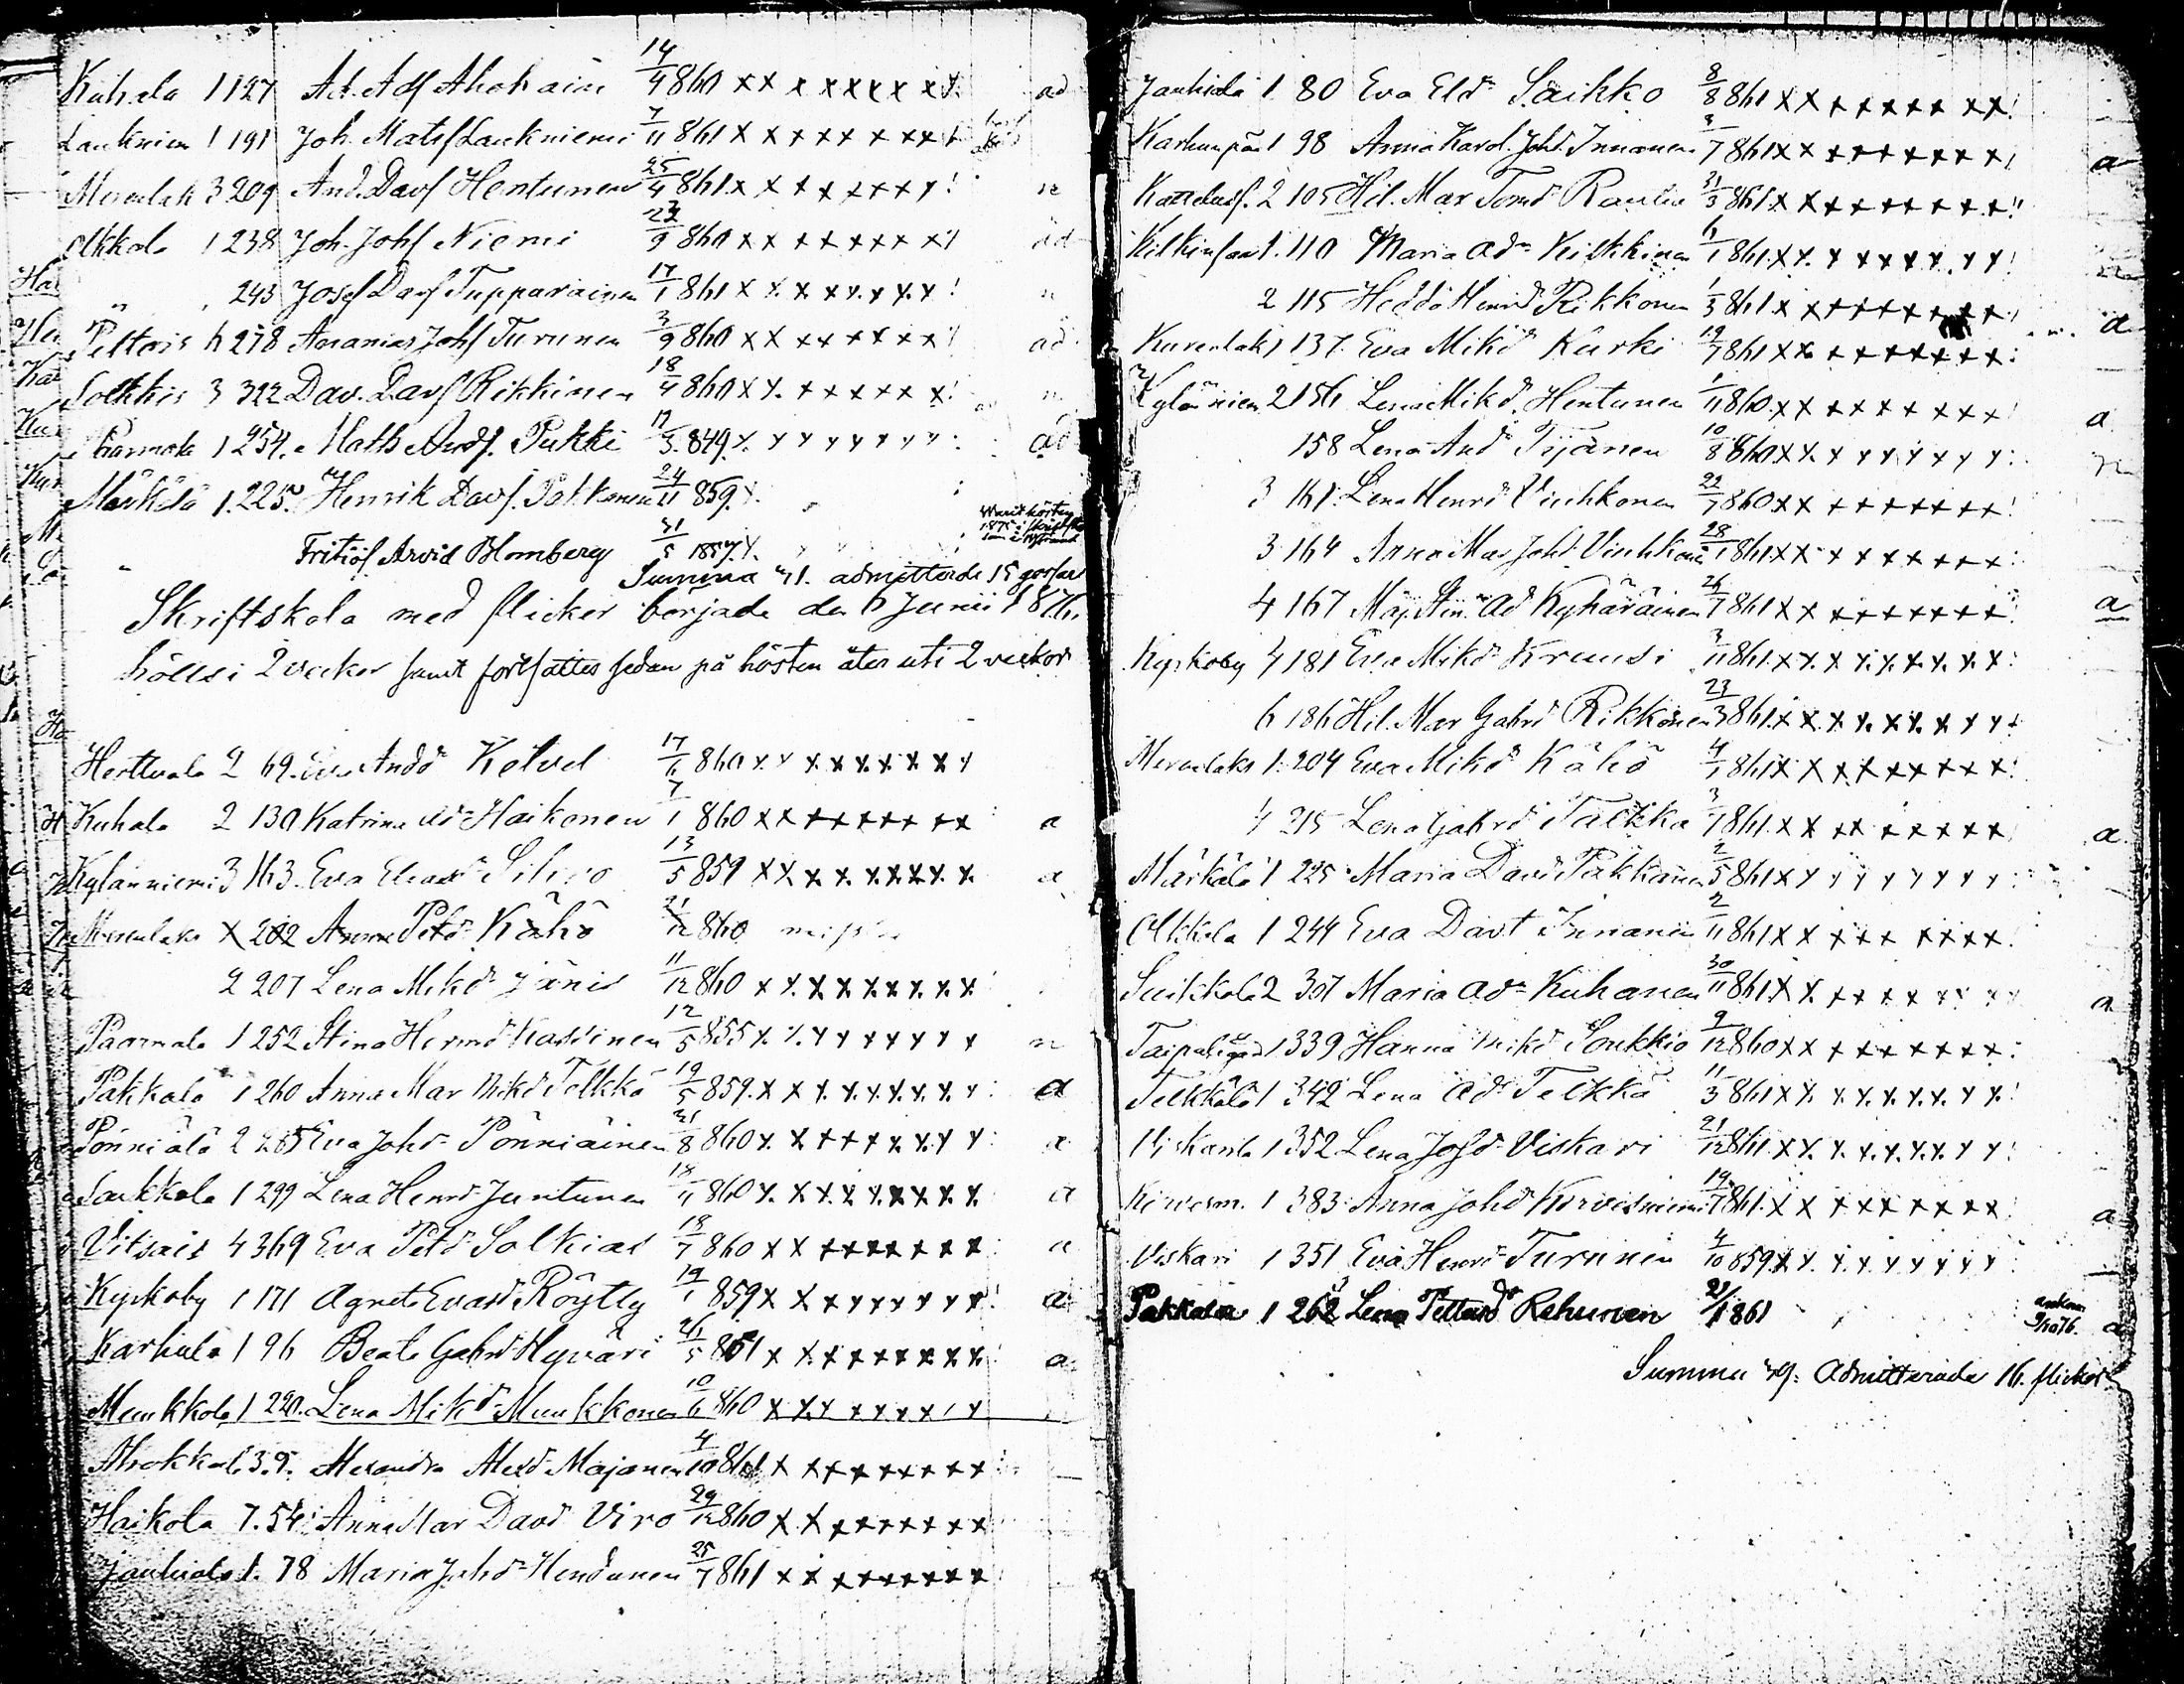 Kuhala 1 127 Ad. Adf Ahokain 14/4 860 x x x x x x x x x ad
Laukniem 1 191 Joh. Matsf Laukniemi 7/11 861 x x x x x x x x x
Merenlak 3 209 And. Davf Hentunen 25/4 861 x x x x x x x x ! n
Olkkola 1 238 Joh. Johf Niemi 23/9 860 x x x x x x x x ! ad
" 243 Josef Davf Tupparainen 17/1 861 x x x x x x x x ! n
Peltois 6 278 Ananias Johf Turunen 3/9 860 x x x x x x x x ! ad
Solkkis 3 322 Dav. Davf Rikkinen 18/4 860 x x x x x x x x ! n
Parmala 1 254. Maths Andf. Pukki 17/3 849 x x x x x x x x : ad
Märkälä 1. 225. Henrik Davf. Pakkanen 24/11 859 x
" Fritiof Arvid Blomberg 31/5 1857 x
Summa 41. admitterade 15 gossar
Skriftskola med flickor började den 6 Junii 1876,
hölls i 2 veckor samt fortsattes sedan på hösten åter uti 2 veckor
Herttuala 2 69. Eva Andd Kelvel 17/6 860 x x x x x x x x x
Kuhala 2 130 Katrina Add Haikonen 7/1 860 x x x x x x x x x a
Kylänniemi 3 163. Eva Eliasd Silvo 13/5 859 x x x x x x x x x a
Merenlaks 202 Anna Petd Kähö 21/12 860
2 207 Lena Mikd Jänis 11/12 860 x x x x x x x x x
Paarmala 1 252 Stina Hermd Kassinen 12/5 855 x x x x x x x x x n
Pakkala 1 260 Anna Mar Mikd Telkkä 19/5 859 x x x x x x x x x a
Pönniälä 2 265 Eva Johd Pönniäinen 31/8 860 x x x x x x x x x a
Sarkkala 1 299 Lena Henrd Juntunen 18/11 860 x x x x x x x x x a
Vitsais 4 369 Eva Petd Solkias 18/7 860 x x x x x x x x x a
Kyrkoby 1 171 Agneta Evasd Röytty 19/1 859 x x x x x x x x x a
Karhula 1 96 Beata Gabrd Hyväri 26/5 861 x x x x x x x x x a
Munkkola 1 220. Lena Mikd Munkkonen 10/6 860 x x x x x x x x x
Ahokkala 3. 9. Alexandra Alexd Majanen 4/10 861 x x x x x x x x x
Haikola 7. 54. Anna Mar Davd Viro 29/12 860 x x x x x x x x x
Jauhiala 1. 78 Maria Johd Hendunen 25/7 861 x x x x x x x x x
Jauhiala 1 80 Eva Eld Saikko 8/8 861 x x x x x x x x x !
Karhunpää 1 98 Anna Karol. Johd Innanen 7 861 x x x x x x x x x a
Kattelusf. 2 105 Hel. Mar Tomd Rautio 31/3 861 x x x x x x x x x !
Kilkinsaar 1. 110 Maria Add Kilkkinen 1 861 x x x x x x x x x !
2 115 Hedda Henrd Rikkonen 1/3 861 x x x x x x x x x a
Kurenlak 1 137. Eva Mikd Kurki 19/7 861 x x x x x x x x x :
Kylänniem. 2 156 Lena Mikd. Hentunen 1/11 860 x x x x x x x x x ! a
158 Lena And Tijänen 10/8 860 x x x x x x x x x : n
3 161. Lena Henrd Vuohkonen 22/7 860 x x x x x x x x x !
3 164 Anna Mar Johd Vuohkonen 28/1 861 x x x x x x x x x :
4 167 Maj. Stin. Ad Kyhäräinen 26/7 861 x x x x x x x x x a
Kyrkoby 4 181 Eva Mikd Kruusi 3/11 861 x x x x x x x x x :
6 186 Hel. Mar Gabrd Rikkonen 23/3 861 x x x x x x x x x
Merenlaks 1. 204 Eva Mikd Kähö 4/1 861 x x x x x x x x x !
4 215 Lena Gabrd Talkka 3/1 861 x x x x x x x x x a
Märkälä 1 225 Maria Davd Pakkanen 2/5 861 x x x x x x x x x
Olkkola 1 244 Eva Davt Innanen 2/11 861 x x x x x x x x x !
Suikkala 2 307 Maria Add Kuhanen 30/11 861 x x x x x x x x x a
Taipals 1 339 Hanna Mikd Soukkio 9/12 860 x x x x x x x x x :
Telkkälä 1 342 Lena Add Telkkä 11/3 861 x x x x x x x x x !
Viskarila 1 352 Lena Johd Viskari 21/12 861 x x x x x x x x x :
Kirvesn. 1 383. Anna Johd Kirvesniemi 19/7 861 x x x x x x x x x a
Viskari 1 351 Eva Henrd Turunen 4/10 859 x x x x x x x x x
Pakkala 1 262 Lena Petterd Rahunen 21/1 861 a
Summa 49. Admitterade 16. flickor